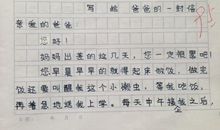 写给爸爸的一封信
亲爱的爸爸:
您好!
妈妈出差的这几天,您一定很累吧!
您早早早的就得起床做饭,做完
饭还要叫醒我这个小懒虫,等我吃饭,
再着急地送我上学。每天中午接我之后,